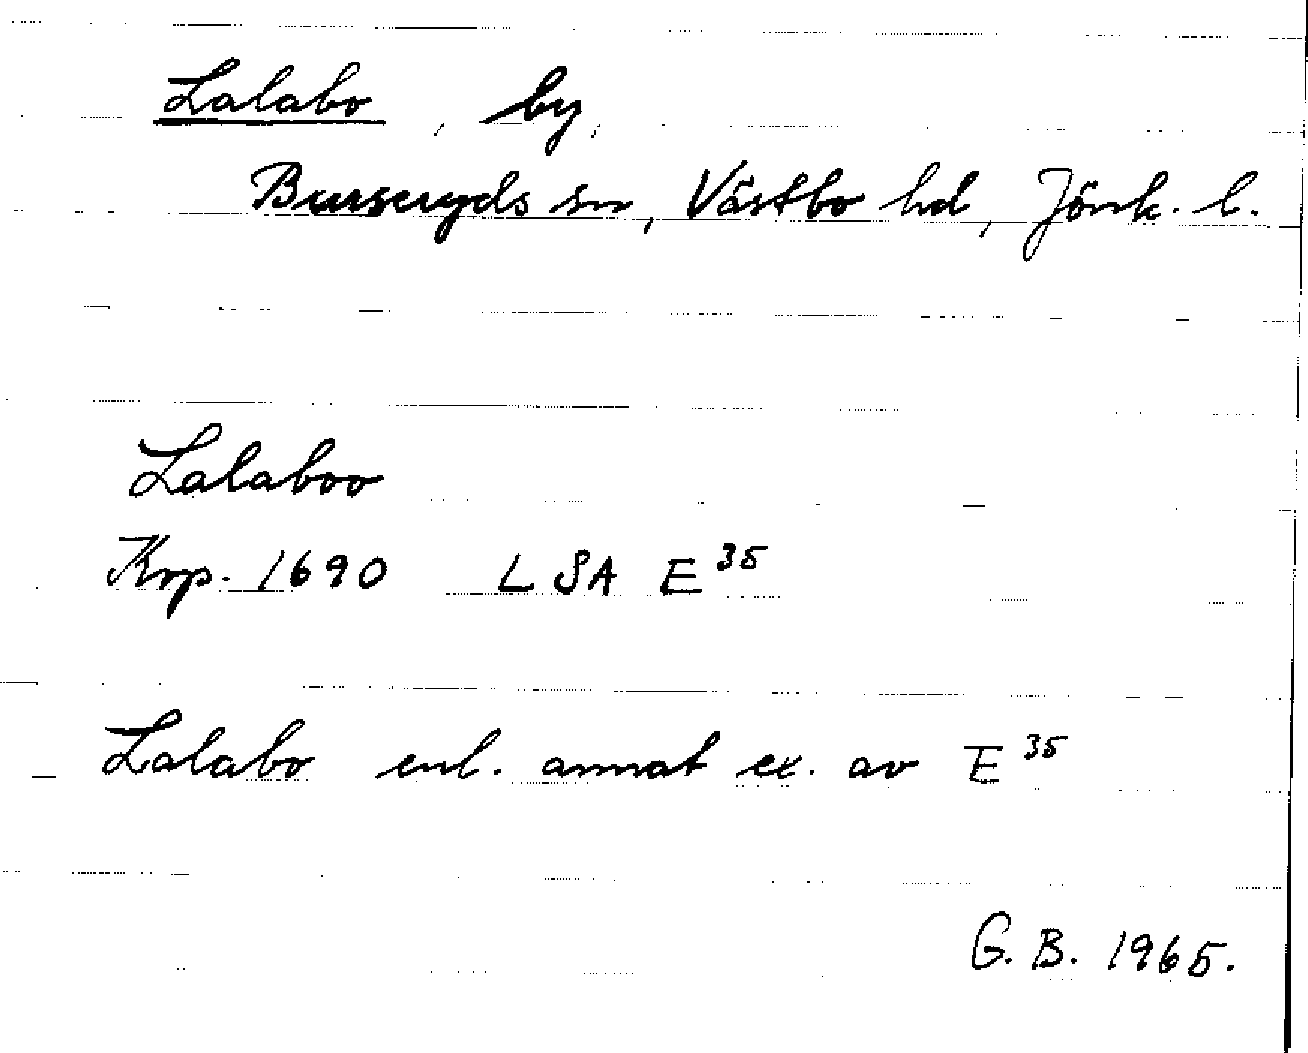 Lalabo, by,
Burseryds sn, Västbo hd, Jönk. l.
Lalaboo
Krp. 1690 LSA E 35
Lalabo enl. annat ex. av E 35
G. B. 1965.